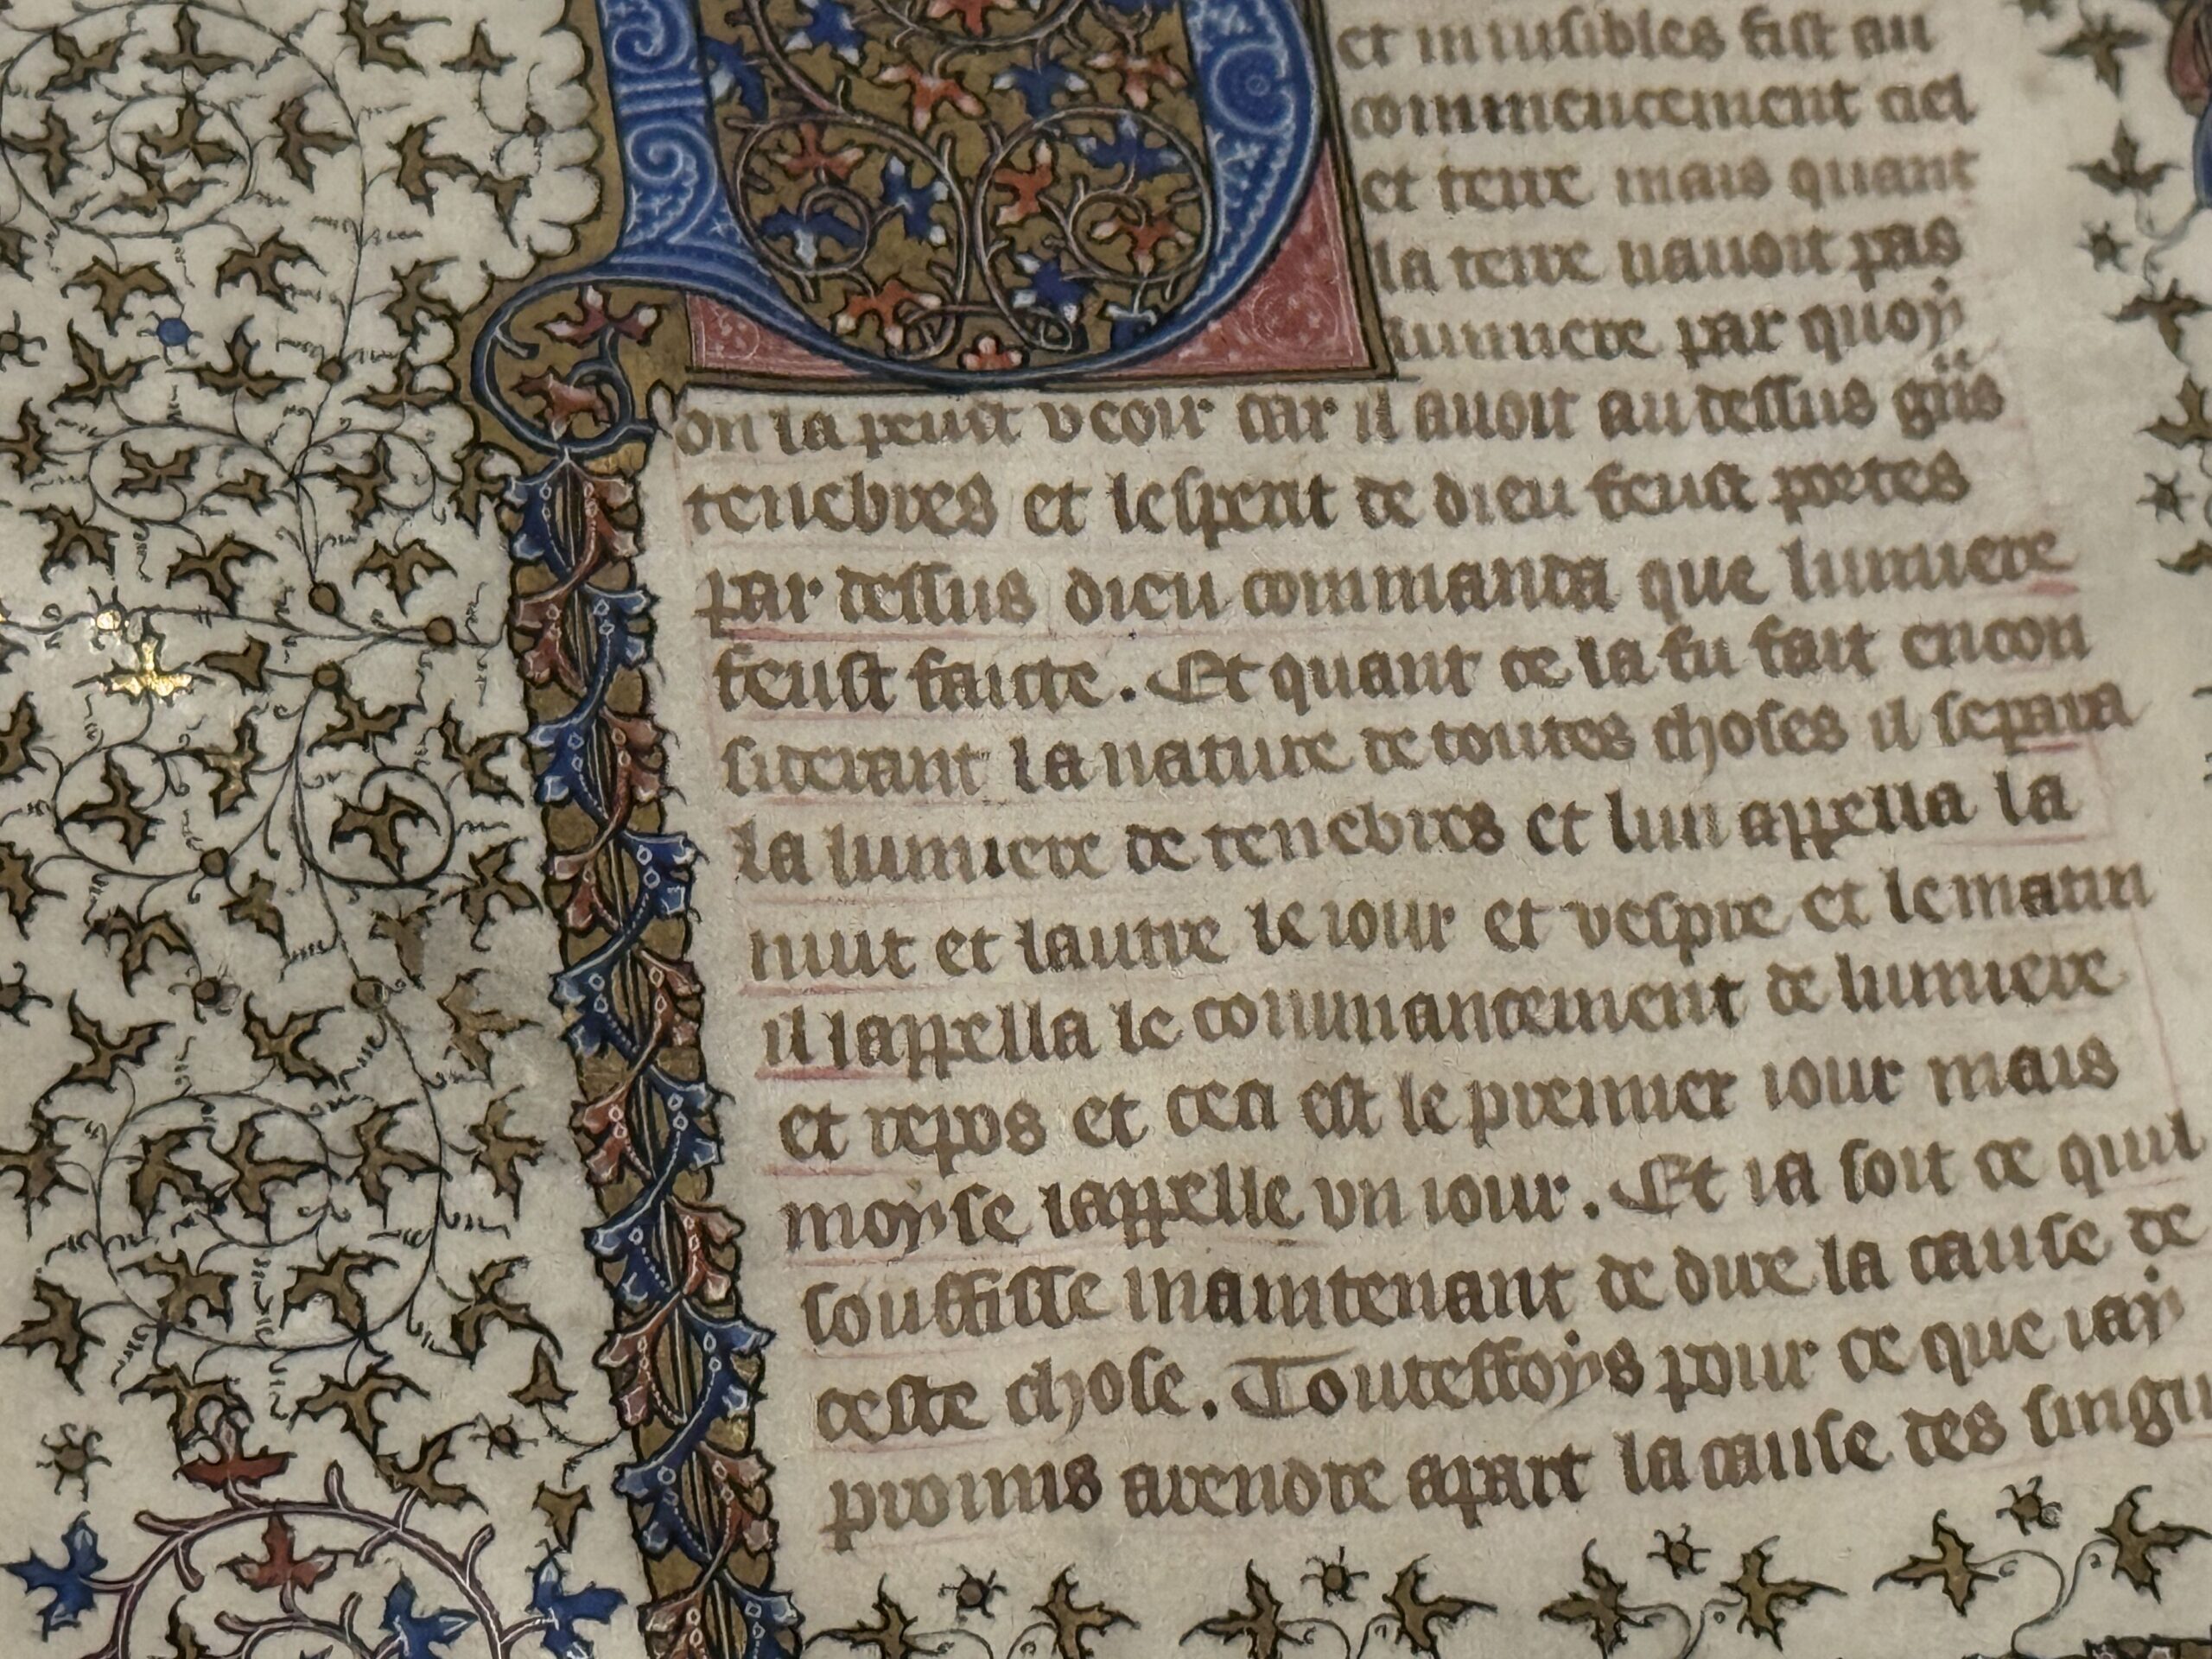 et inuisibles fist au
commencement ciel
et terre mais quant
la terre nauoit pas
lumiere par quoy
on la peust veoir car il auoit au dessus gñs
tenebres et lesperit de dieu feust portes
par dessus dieu commanda que lumiere
feust faicte. Et quant ce la fu fait encon
siderant la nature de toutes choses il separa
la lumiere de tenebres et lun appella la
nuit et lautre le iour et vespre et le matin
il lappella le commancement de lumiere
et repos et ceci est le premier iour mais
moyse lappelle vn iour. Et ia soit ce quil
souffisse maintenant de dire la cause de
ceste chose. Touteffoys pour ce que iay
promis a rendre apart la cause des singu